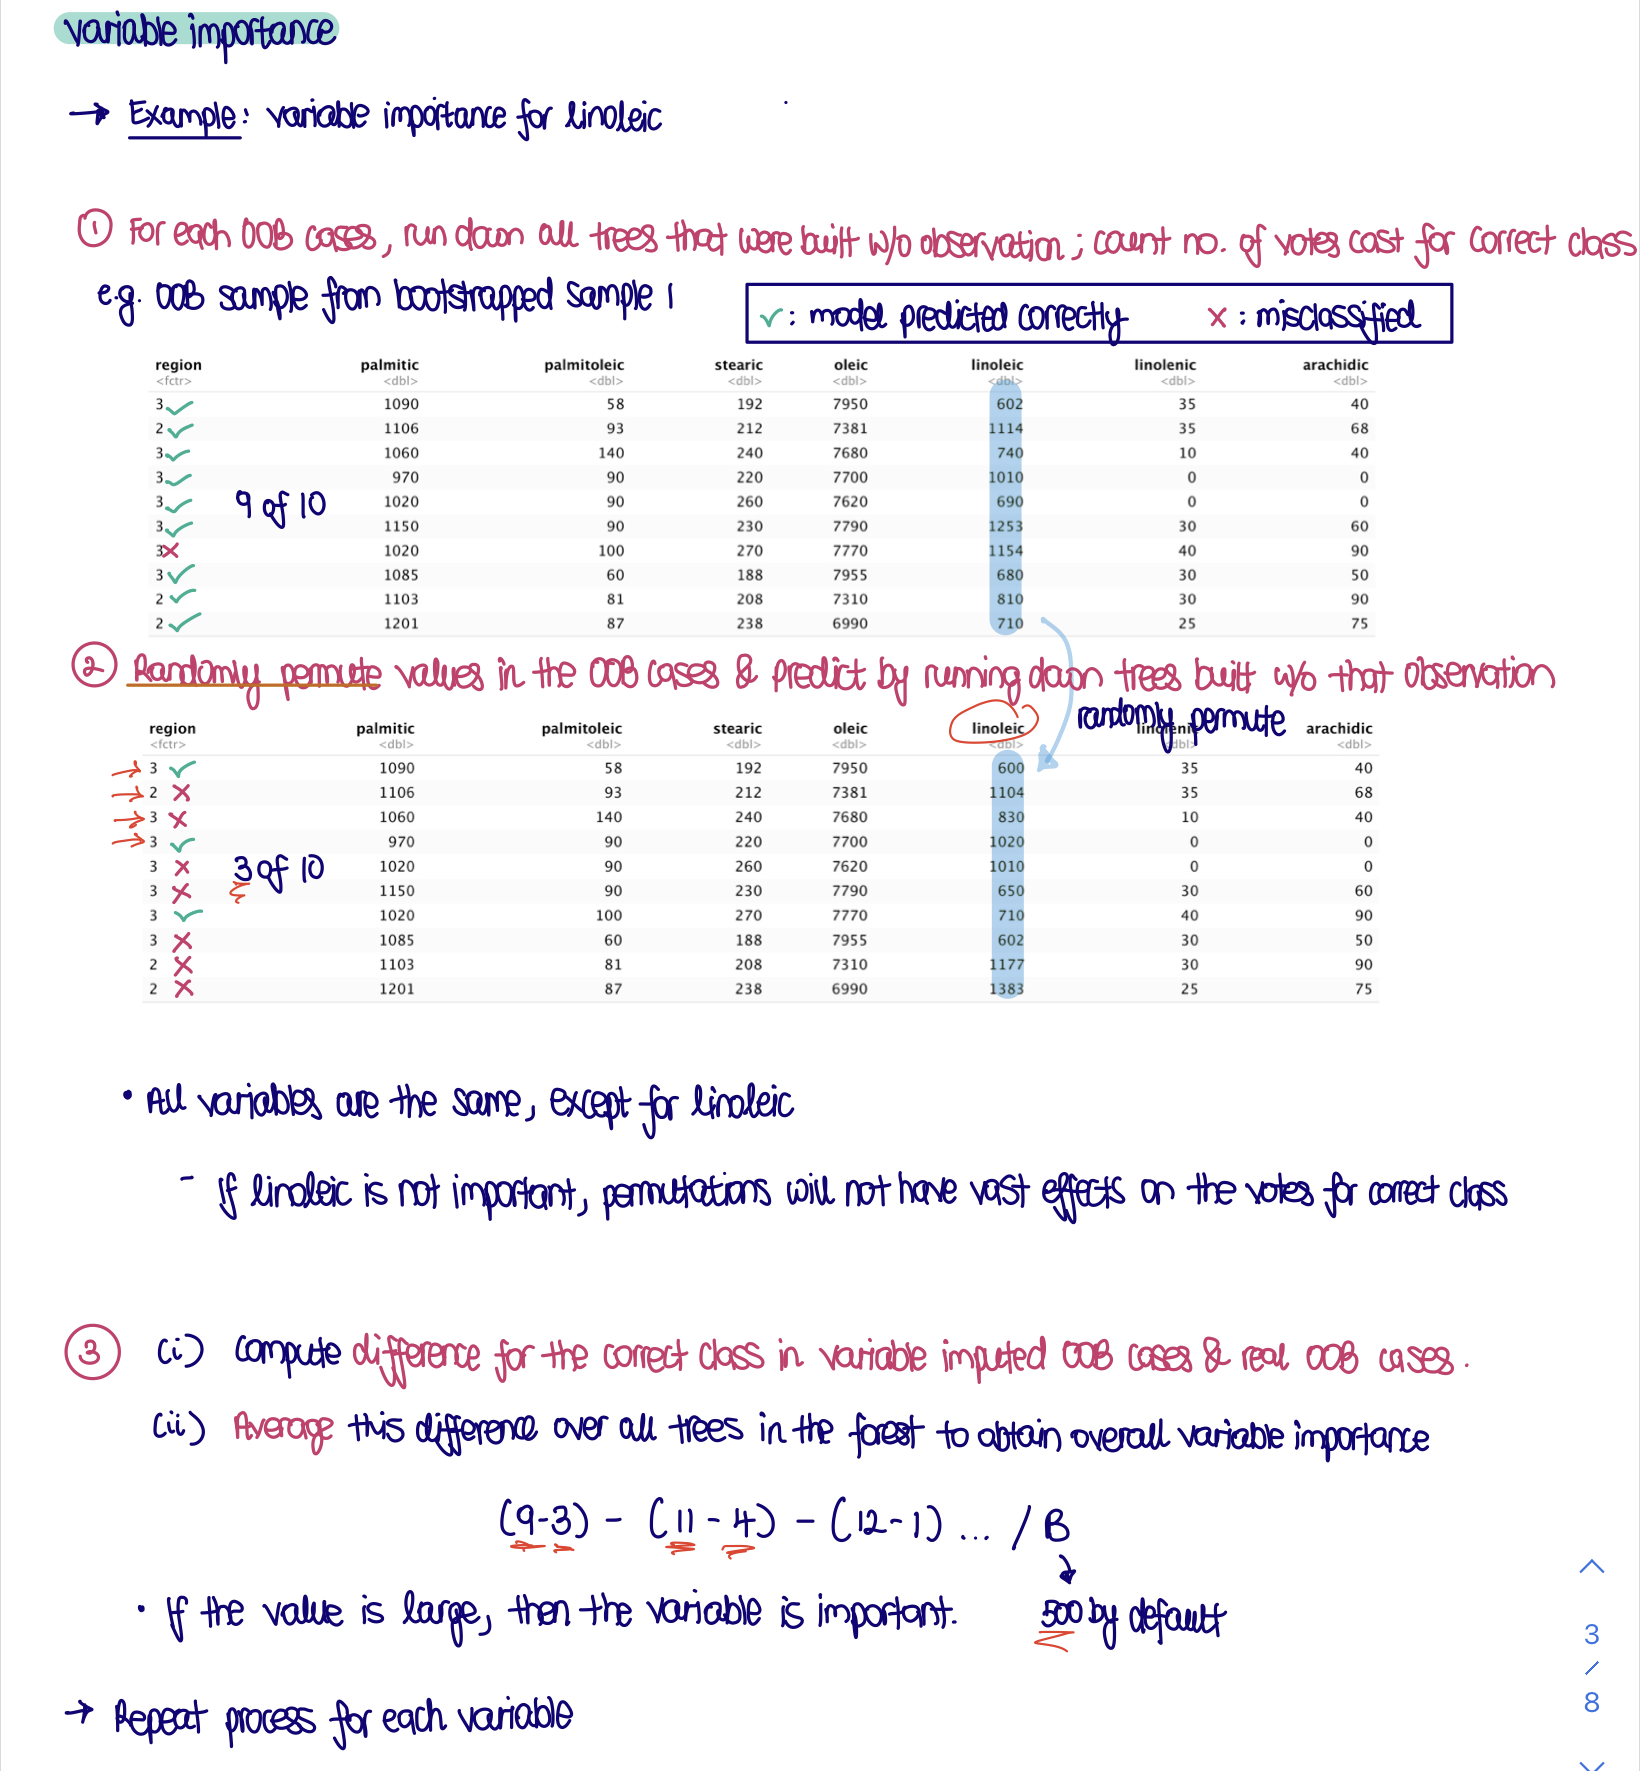 variable importance
→ Example: variable importance for linoleic
① For each OOB cases, run down all trees that were built w/o observation; count no. of votes cast for correct class
e.g. OOB sample from bootstrapped sample 1
✓: model predicted correctly ×: misclassified
region palmitic palmitoleic stearic oleic linoleic linolenic arachidic
<fctr> <dbl> <dbl> <dbl> <dbl> <dbl> <dbl> <dbl>
3 ✓ 1090 58 192 7950 602 35 40
2 ✓ 1106 93 212 7381 1114 35 68
3 ✓ 1060 140 240 7680 740 10 40
3 ✓ 970 90 220 7700 1010 0 0
3 ✓ 1020 90 260 7620 690 0 0
9 of 10
3 ✓ 1150 90 230 7790 1253 30 60
3 × 1020 100 270 7770 1154 40 90
3 ✓ 1085 60 188 7955 680 30 50
2 ✓ 1103 81 208 7310 810 30 90
2 ✓ 1201 87 238 6990 710 25 75
② Randomly permute values in the OOB cases & predict by running down trees built w/o that observation
randomly permute
region palmitic palmitoleic stearic oleic linoleic linolenic arachidic
<fctr> <dbl> <dbl> <dbl> <dbl> <dbl> <dbl> <dbl>
→ 3 ✓ 1090 58 192 7950 600 35 40
→ 2 × 1106 93 212 7381 1104 35 68
→ 3 × 1060 140 240 7680 830 10 40
→ 3 ✓ 970 90 220 7700 1020 0 0
3 × 1020 90 260 7620 1010 0 0
3 of 10
3 × 1150 90 230 7790 650 30 60
3 ✓ 1020 100 270 7770 710 40 90
3 × 1085 60 188 7955 602 30 50
2 × 1103 81 208 7310 1177 30 90
2 × 1201 87 238 6990 1383 25 75
• All variables are the same, except for linoleic
- If linoleic is not important, permutations will not have vast effects on the votes for correct class
③ (i) compute difference for the correct class in variable imputed OOB cases & real OOB cases.
(ii) Average this difference over all trees in the forest to obtain overall variable importance
(9-3) - (11-4) - (12-1) ... / B
500 by default
• If the value is large, then the variable is important.
→ Repeat process for each variable
3
/
8